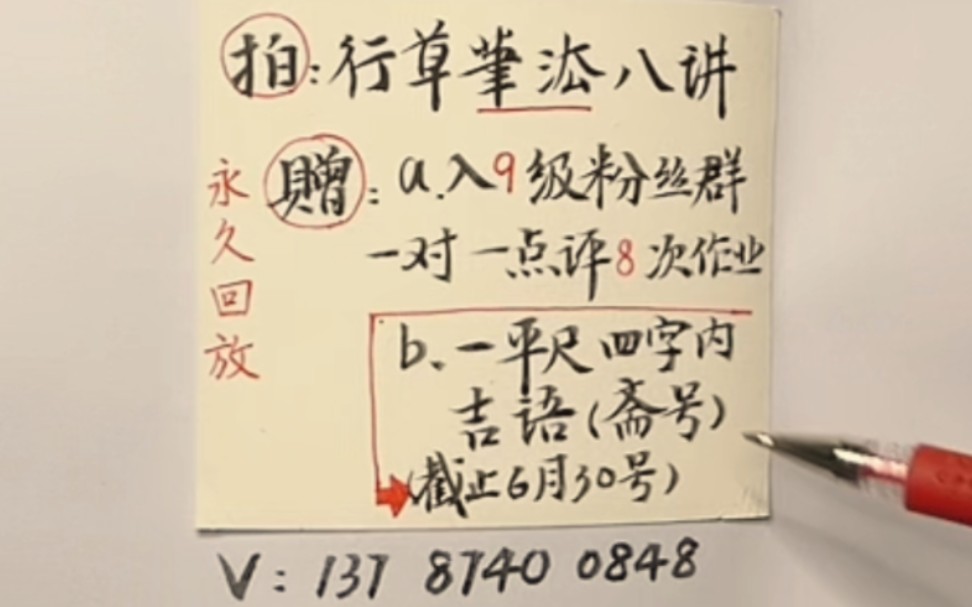 拍:行草筆法八讲
永久回放
赠:a.入9级粉丝群
一对一点评8次作业
b、一平尺四字内
吉语(斋号)
(截止6月30号)
V:137 8740 0848